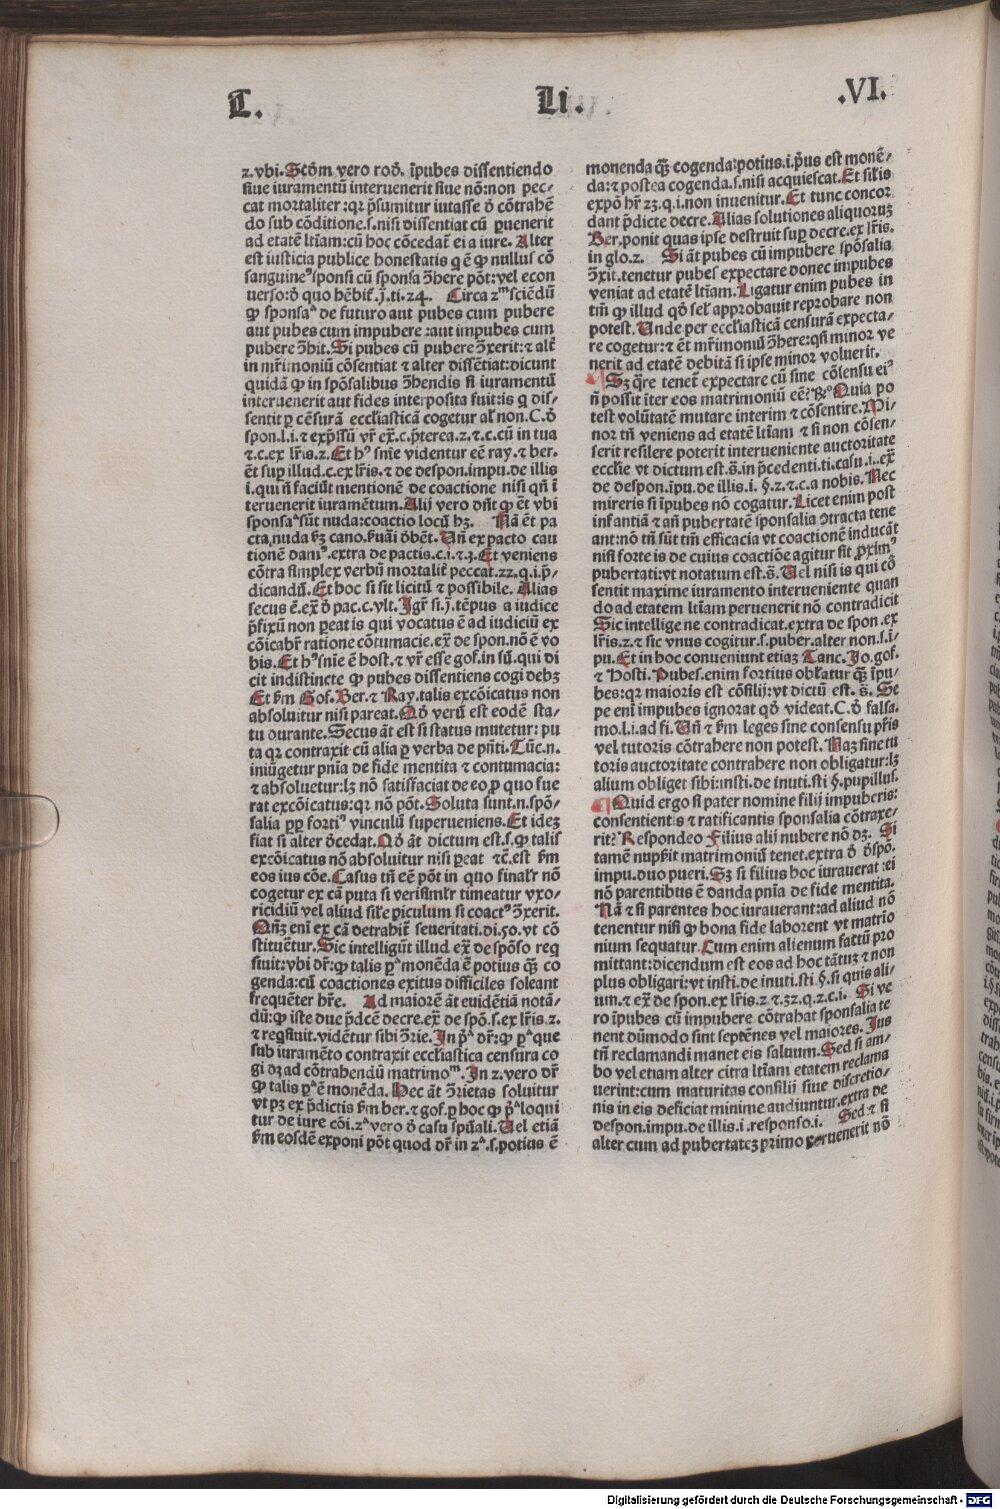 T.
Li.
.VI.
2.vbi.Scd̄m vero roō. īpubes dissentiendo
siue iuramentū interuenerit siue nō:non pec-
cat mortaliter:qr p̄sumitur iurasse ō cōtrahē
do sub cōditione.s.nisi dissentiat cū puenerit
ad etatē ltīam:cū hoc cōcedat̄ ei a iure. Alter
est iusticia publice honestatis q ē ꝙ nullus cō
sanguineꝰ sponsi cū sponsa ɔhere pōt:vel econ
uerso:ō quo hēbit̄.j.ti.24. Circa 2ᵐ sciēdū
ꝙ sponsaᵃ de futuro aut pubes cum pubere
aut pubes cum impubere:aut impubes cum
pubere ɔhit. Si pubes cū pubere ɔxerit:⁊ alt̄
in mr̄imoniū cōsentiat ⁊ alter dissētiat:dicunt
quidā ꝙ in spōsalibus ɔhendis si iuramentū
interuenerit aut fides interposita fuit:is q dis-
sentit ꝑ cēsurā eccl̄iasticā cogetur al̄ non.C.ō
spon.l.i.⁊ exp̄ssū vr̄ ex̄.c.p̄terea.2.⁊.c.cū in tua
⁊.c.ex lr̄is.2.Et hꝰ snīe videntur eē ray.⁊ ber.
ēt suꝑ illud.c.ex lr̄is.⁊ de despon.impu.de illis
i.qui n̄ faciūt mentionē de coactione nisi qn̄ ī
teruenerit iuramētum.Alij vero dn̄t ꝙ ēt vbi
sponsaᵃ sūt nuda:coactio locū hꝫ. Nā ēt pa
cta,nuda ẜm cano.ẜuāi ōbēt.Un̄ ex pacto cau
tionē damꝰ.extra de pactis.c.i.⁊.3.Et veniens
cōtra simplex verbū mortalit̄ peccat.22.q.i.p̄-
dicandū.Et hoc si sit licitū ⁊ possibile. Alias
secus ē.ex̄.ō pac.c.vlt.Igr̄ si.j.tēpus a iudice
p̄fixū non pareat is qui vocatus ē ad iudiciū ex
cōicabr̄ ratione cōtumacie.ex̄.de spon.nō ē vo
bis.Et hꝰ snīe ē host.⁊ vr̄ esse gof.in sū.qui di
cit indistincte ꝙ pubes dissentiens cogi debꝫ
Et ẜm Gof.Ber.⁊ Ray.talis excōicatus non
absoluitur nisi pareat.Qō verū est eodē sta-
tu durante.Secus āt est si status mutetur: pu
ta qr contraxit cū alia ꝑ verba de pn̄ti.Tūc.n.
iniūgetur pnīa de fide mentita ⁊ contumacia:
⁊ absoluetur:lꝫ nō satisfaciat de eo,ꝓ quo fue
rat excōicatus:qr nō pōt.Soluta sunt.n.spō-
salia ꝓp̄ fortiꝰ vinculū superueniens.Et idez
fiat si alter ōcedat.Qō āt dictum est.s.ꝙ talis
excōicatus nō absoluitur nisi pareat ⁊c̄.est ẜm
eos ius cōe.Casus tn̄ eē pōt in quo finalr̄ nō
cogetur ex cā puta si verisimlr̄ timeatur vxo-
ricidiū vel aliud sil̄e piculum si coactꝰ ɔxerit.
Qn̄ꝫ enī ex cā detrahit̄ seueritati.di.50.vt cō
stituētur.Sic intelligūt illud ex̄ de spōso req̄
siuit:vbi dr̄:ꝙ talis pᵃ monēda ē potius q̄ꝫ co
genda:cū coactiones exitus difficiles soleant
frequēter hr̄e. Ad maiorē āt euidētiā notā-
dū:ꝙ iste due p̄dcē decre.ex̄.de spō.s.ex lr̄is.2.
⁊ reqsiuit.videntur sibi ɔrie.In pᵃ dr̄:ꝙ pᵃ que
sub iuramēto contraxit eccl̄iastica censura co
gi dꝫ ad cōtrahendū matrimoᵐ.In 2.vero dr̄
ꝙ talis pᵃ ē monēda.Hec āt ɔrietas soluitur
vt pꝫ ex p̄dictis ẜm ber.⁊ gof.ꝑ hoc ꝙ pᵃ loqui
tur de iure cōi.2ᵃ vero ō casu spūali.Uel etiā
ẜm eosdē exponi pōt quod dr̄ in 2ᵃ.s.potius ē
monenda q̄ꝫ cogenda:potius.i.p̄us est monē-
da:⁊ postea cogenda.s.nisi acquiescat.Et sil̄is
expō hr̄ 23.q.i.non inuenitur.Et tunc concor
dant p̄dicte decre.Alias solutiones aliquoruꝫ
Ber.ponit quas ipse destruit suꝑ decre.ex lr̄is.
in glo.2. Si āt pubes cū impubere spōsalia
ɔxit.tenetur pubes expectare donec impubes
veniat ad etatē ltīam.Ligatur enim pubes in
tm̄ ꝙ illud qō sel̄ approbauit reprobare non
potest.Unde per eccl̄iasticā censurā expecta-
re cogetur:⁊ ēt mr̄imoniū ɔhere:qn̄ minor ve
nerit ad etatē debitā si ipse minor voluerit.
¶ Sꝫ q̄re tenet̄ expectare cū sine cōsensu eiꝰ
n̄ possit īter eos matrimoniū eē?℞º Quia po
test volūtatē mutare interim ⁊ cōsentire.Mi-
nor tn̄ veniens ad etatē ltīam ⁊ si non cōsen-
serit resilere poterit interueniente auctoritate
ecclīe vt dictum est.s̄.in p̄cedenti.ti.casu.i..ex̄
de despon.īpu.de illis.i.§.2.⁊.c.a nobis.Nec
mireris si īpubes nō cogatur.Licet enim post
infantiā ⁊ an̄ pubertatē sponsalia ɔtracta tene
ant:nō tn̄ sūt tm̄ efficacia vt coactionē inducāt
nisi forte is de cuius coactiōe agitur sit ꝓximꝰ
pubertati:vt notatum est.s̄.Uel nisi is qui cō
sentit maxime iuramento interueniente quan
do ad etatem ltīam peruenerit nō contradicit
Sic intellige ne contradicat.extra de spon.ex
lr̄is.2.⁊ sic vnus cogitur.s.puber.alter non.s.ī-
pu.Et in hoc conueniunt etiaꝫ Tanc.Jo.gof.
⁊ Hosti.Pubes.enim fortius obl̄atur q̄ꝫ īpu-
bes:qr maioris est cōsilij:vt dictū est. s̄. Se
pe enī impubes ignorat qō videat.C.ō falsa.
mo.l.i.ad fi.Un̄ ⁊ ẜm leges sine consensu pr̄is
vel tutoris cōtrahere non potest.Naꝫ sine tu
toris auctoritate contrahere non obligatur:lꝫ
alium obliget sibi:insti.de inuti.sti §.pupillus.
¶ Quid ergo si pater nomine filij impuberis:
consentientis ⁊ ratificantis sponsalia cōtraxe-
rit? Respondeo Filius alij nubere nō dꝫ. Si
tamē nupẜit matrimoniū tenet.extra ō ōspō.
impu.duo pueri.Sꝫ si filius hoc iurauerat :ei
nō parentibus ē danda pnīa de fide mentita.
Nā ⁊ si parentes hoc iurauerant:ad aliud nō
tenentur nisi ꝙ bona fide laborent vt matrīo
nium sequatur.Cum enim alienum factū pro
mittant:dicendum est eos ad hoc tātuꝫ ⁊ non
plus obligari:vt insti.de inuti.sti §.si quis ali-
um.⁊ ex̄ de spon.ex lr̄is.2 ⁊ 32.q.2.c.i. Si ve
ro īpubes cū impubere cōtrahat sponsalia te
nent dūmodo sint septēnes vel maiores. Jus
tn̄ reclamandi manet eis saluum.Sed si am-
bo vel etiam alter citra ltīam etatem reclama
uerint:cum maturitas consilij siue discretio-
nis in eis deficiat minime audiuntur.extra de
despon.impu.de illis.i.responso.i. Sed ⁊ si
alter cum ad pubertateꝫ primo peruenerit nō
Digitalisierung gefördert durch die Deutsche Forschungsgemeinschaft - DFG